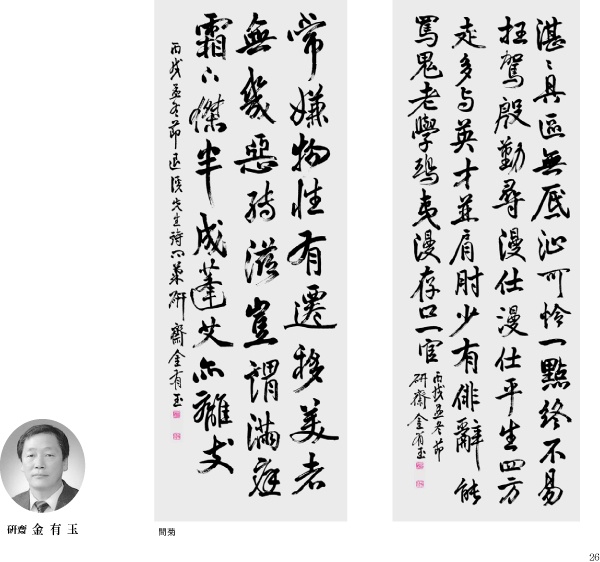 湛〻具區無底沁可怜一點終不易
枉駕殷勤尋漫仕漫仕平生四方
走多与英才並肩肘少有俳辭能
罵鬼老學鴟夷漫存口一官
丙戌孟冬節
硏齋金有玉
常嫌物性有遷移美者
無幾惡轉滋豈謂滿庭
霜下傑半成蓬艾亦離支
丙戌孟冬節退溪先生詩問菊硏齋金有玉
硏齋 金有玉
問菊
26